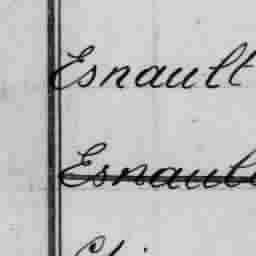 Esnault
Esnaul